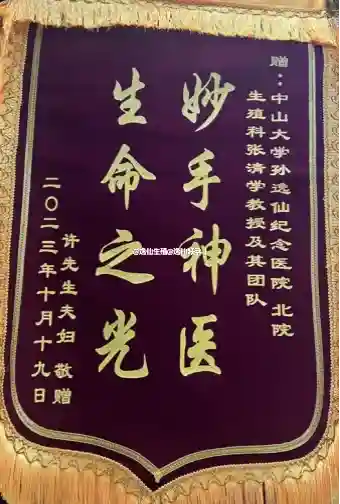 赠：中山大学孙逸仙纪念医院 北院
生殖科张清学教授及其团队
妙手神医
生命之光
许先生夫妇 敬赠
二〇二三年十月十九日